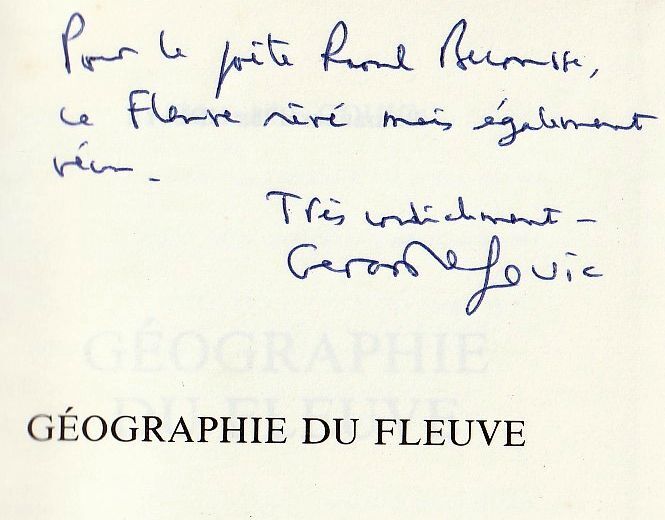 Pour le poète Raoul Bécousse,
ce Fleuve rêvé mais également
vécu.
Très cordialement –
Gerard Le Gouic
GÉOGRAPHIE DU FLEUVE